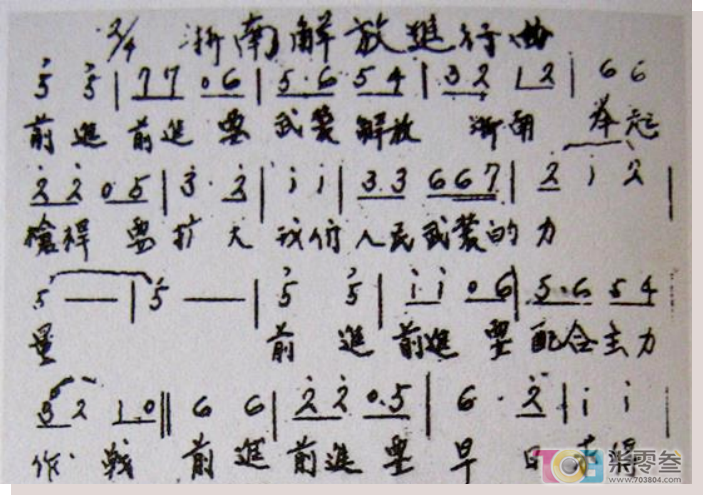 2/4 浙南解放進行曲
5 5 | 7 7 0 6 | 5 · 6 5 4 | 3 2 1 2 | 6 6
前進 前進 要 武裝 解放 浙南 举起
2 2 0 5 | 3 · 2 | i i | 3 3 6 6 7 | 2 i 2 |
槍桿 要扩大 我们人民武裝的力
5 — — | 5 — — | 5 5 | i i 0 6 | 5 · 6 5 4
量 前 進 前進 要 配合主力
3 2 1 0 || 6 6 | 2 2 0 5 | 6 · 2 | i i
作 戰 前進 前進 要 早 日
柒零叁
www.703804.com